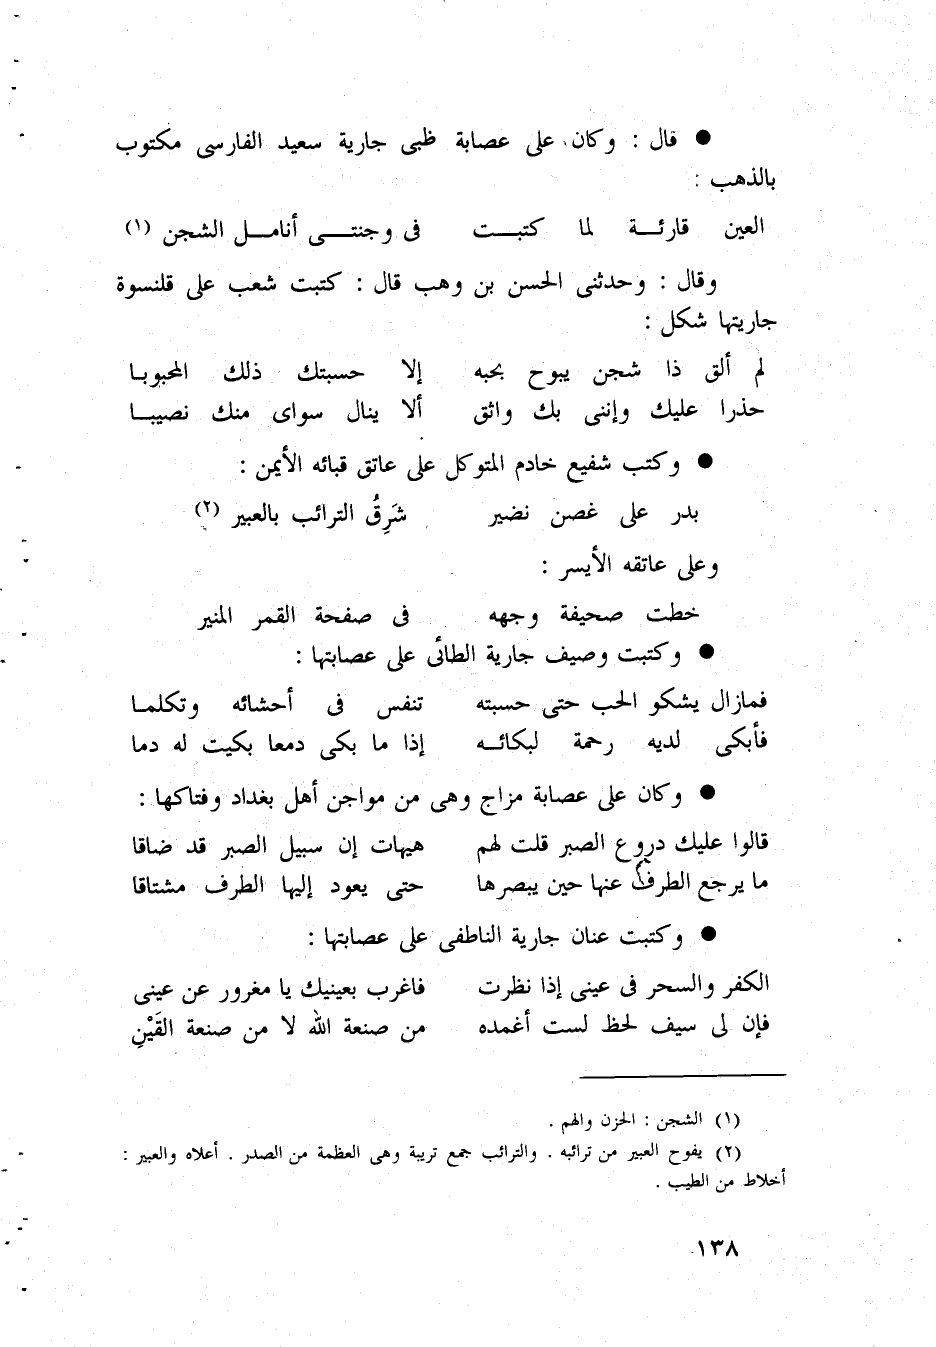 ● قال : وكان على عصابة ظبى جارية سعيد الفارسى مكتوب
بالذهب :
العين قارئــة لما كتبــت فى وجنتــى أنامــل الشجن (١)
وقال : وحدثنى الحسن بن وهب قال : كتبت شعب على قلنسوة
جاريتها شكل :
لم ألق ذا شجن يبوح بحبه إلا حسبتك ذلك المحبوبـا
حذرا عليك وإننى بك واثق ألا ينال سواى منك نصيبـا
● وكتب شفيع خادم المتوكل على عاتق قبائه الأيمن :
بدر على غصن نضير شَرِقُ الترائب بالعبير (٢)
وعلى عاتقه الأيسر :
خطت صحيفة وجهه فى صفحة القمر المنير
● وكتبت وصيف جارية الطائى على عصابتها :
فمازال يشكو الحب حتى حسبته تنفس فى أحشائه وتكلمـا
فأبكى لديه رحمة لبكائـه إذا ما بكى دمعا بكيت له دما
● وكان على عصابة مزاج وهى من مواجن أهل بغداد وفتاكها :
قالوا عليك دروع الصبر قلت لهم هيهات إن سبيل الصبر قد ضاقا
ما يرجع الطرف عنها حين يبصرها حتى يعود إليها الطرف مشتاقا
● وكتبت عنان جارية الناطفى على عصابتها :
الكفر والسحر فى عينى إذا نظرت فاغرب بعينيك يا مغرور عن عينى
فإن لى سيف لحظ لست أغمده من صنعة الله لا من صنعة القَيْنِ
(١) الشجن : الحزن والهم .
(٢) يفوح العبير من ترائبه . والترائب جمع تريبة وهى العظمة من الصدر . أعلاه والعبير :
أخلاط من الطيب .
١٣٨